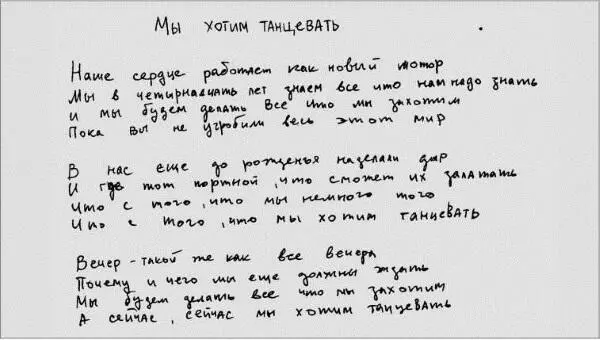 Мы хотим танцевать
Наше сердце работает как новый мотор
Мы в четырнадцать лет знаем все что нам надо знать
И мы будем делать все что мы захотим
Пока вы не угробили весь этот мир
В нас еще до рожденья наделали дыр
И где тот портной, что сможет их залатать
Что с того, что мы немного того
Что с того, что мы хотим танцевать
Вечер - такой же как все вечера
Почему и чего мы еще должны ждать
Мы будем делать все что мы захотим
А сейчас, сейчас мы хотим танцевать